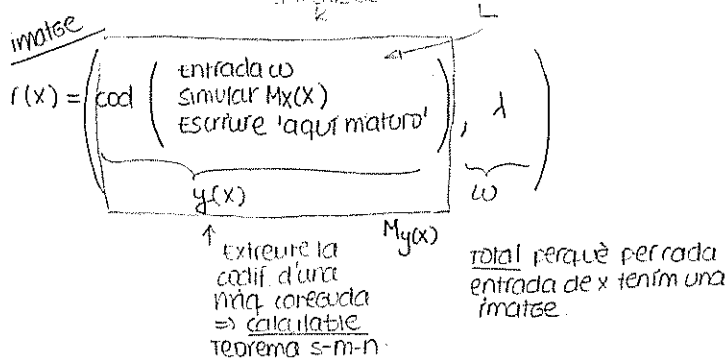 k
L
imatge
r(x) = ( cod ( Entrada ω
Simular Mx(x)
Escriure 'aquí m'aturo' ) , λ )
y(x)
ω
My(x)
↑
Extreure la
codif. d'una
màq coneguda
=> calculable
Teorema s-m-n.
Total perquè per cada
entrada de x tenim una
imatge.